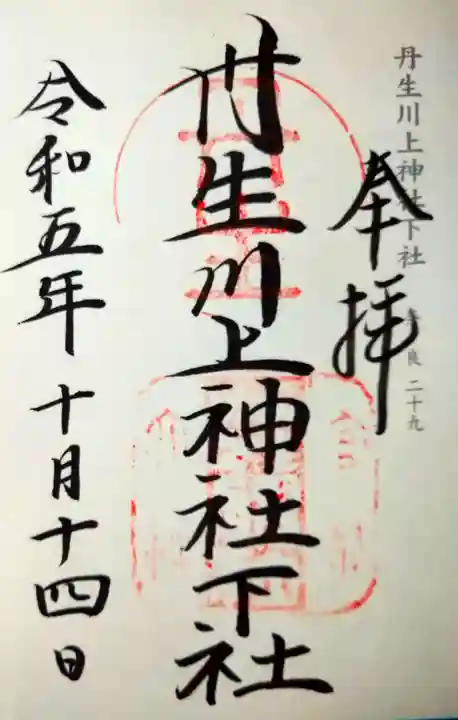 丹生川上神社下社
奈良 二十九
奉拝
丹生川上神社下社
令和五年 十月十四日